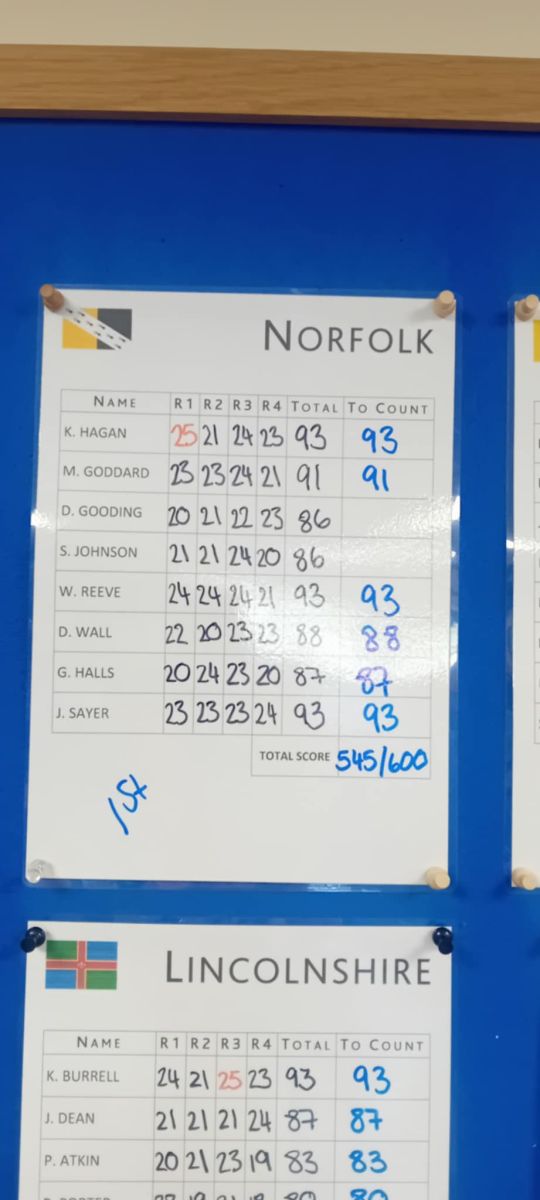 NORFOLK
NAME R1 R2 R3 R4 TOTAL TO COUNT
K. HAGAN 25 21 24 23 93 93
M. GODDARD 23 23 24 21 91 91
D. GOODING 20 21 22 23 86
S. JOHNSON 21 21 24 20 86
W. REEVE 24 24 24 21 93 93
D. WALL 22 20 23 23 88 88
G. HALLS 20 24 23 20 87 87
J. SAYER 23 23 23 24 93 93
TOTAL SCORE 545/600
1st
LINCOLNSHIRE
NAME R1 R2 R3 R4 TOTAL TO COUNT
K. BURRELL 24 21 25 23 93 93
J. DEAN 21 21 21 24 87 87
P. ATKIN 20 21 23 19 83 83